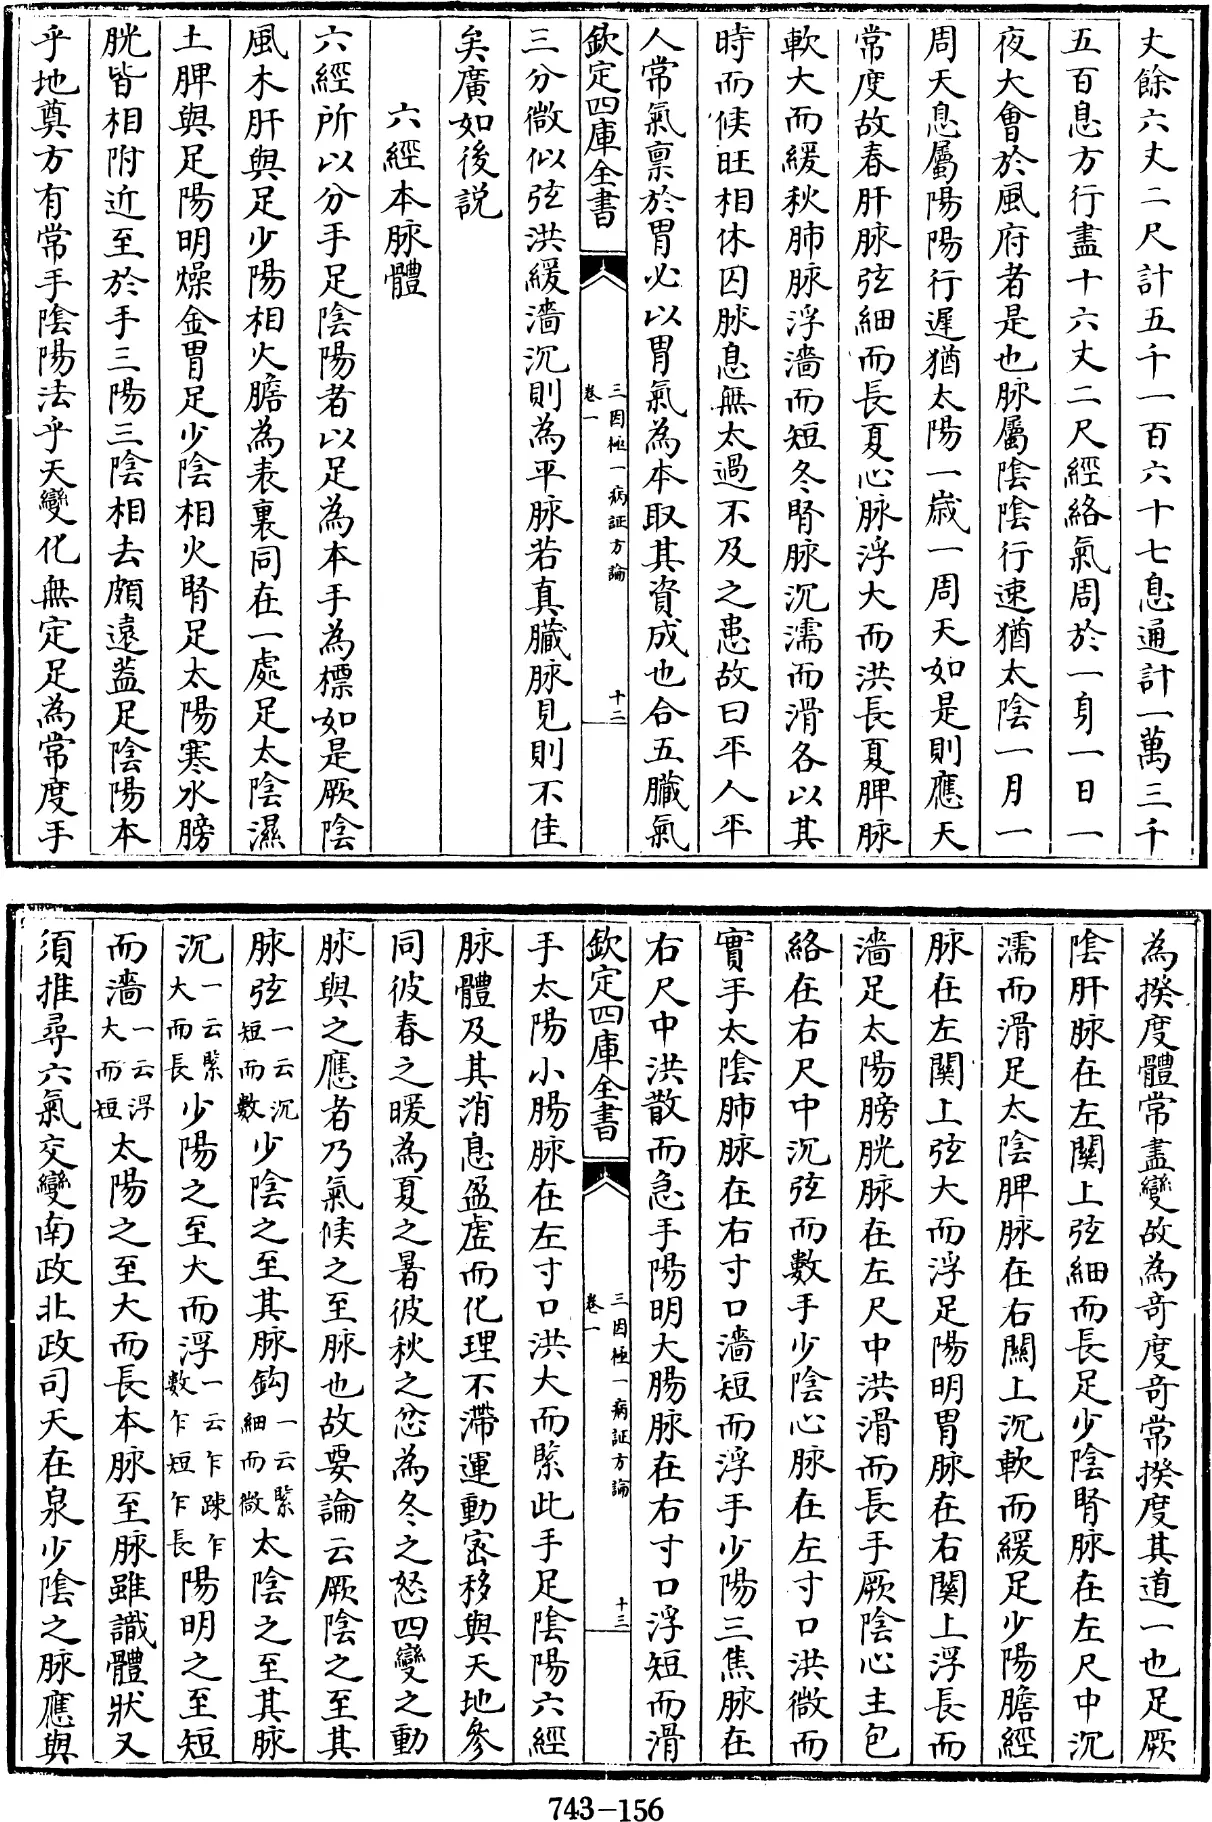 丈餘六丈二尺計五千一百六十七息通計一萬三千
五百息方行盡十六丈二尺經絡氣周於一身一日一
夜大會於風府者是也脉屬陰陰行速猶太陰一月一
周天息屬陽陽行遲猶太陽一歳一周天如是則應天
常度故春肝脉弦細而長夏心脉浮大而洪長夏脾脉
軟大而緩秋肺脉浮濇而短冬腎脉沉濡而滑各以其
時而候旺相休囚脉息無太過不及之患故曰平人平
人常氣禀於胃必以胃氣為本取其資成也合五臟氣
欽定四庫全書
三因極一病証方論
卷一
十二
三分微似弦洪緩濇沉則為平脉若真臟脉見則不佳
矣廣如後説
六經本脉體
六經所以分手足陰陽者以足為本手為標如是厥陰
風木肝與足少陽相火膽為表裏同在一處足太陰濕
土脾與足陽明燥金胃足少陰相火腎足太陽寒水膀
胱皆相附近至於手三陽三陰相去頗遠葢足陰陽本
乎地奠方有常手陰陽法乎天變化無定足為常度手
為揆度體常盡變故為竒度竒常揆度其道一也足厥
陰肝脉在左關上弦細而長足少陰腎脉在左尺中沉
濡而滑足太陰脾脉在右關上沉軟而緩足少陽膽經
脉在左關上弦大而浮足陽明胃脉在右關上浮長而
濇足太陽膀胱脉在左尺中洪滑而長手厥陰心主包
絡在右尺中沉弦而數手少陰心脉在左寸口洪微而
實手太陰肺脉在右寸口濇短而浮手少陽三焦脉在
右尺中洪散而急手陽明大腸脉在右寸口浮短而滑
欽定四庫全書
三因極一病証方論
卷一
十三
手太陽小腸脉在左寸口洪大而緊此手足陰陽六經
脉體及其消息盈虚而化理不滯運動密移與天地參
同彼春之暖為夏之暑彼秋之忿為冬之怒四變之動
脉與之應者乃氣候之至脉也故要論云厥陰之至其
脉弦一云沉短而數少陰之至其脉鈎一云緊細而微太陰之至其脉
沉一云緊大而長少陽之至大而浮一云乍疎乍數乍短乍長陽明之至短
而濇一云浮大而短太陽之至大而長本脉至脉雖識體狀又
須推尋六氣交變南政北政司天在泉少陰之脉應與
743-156